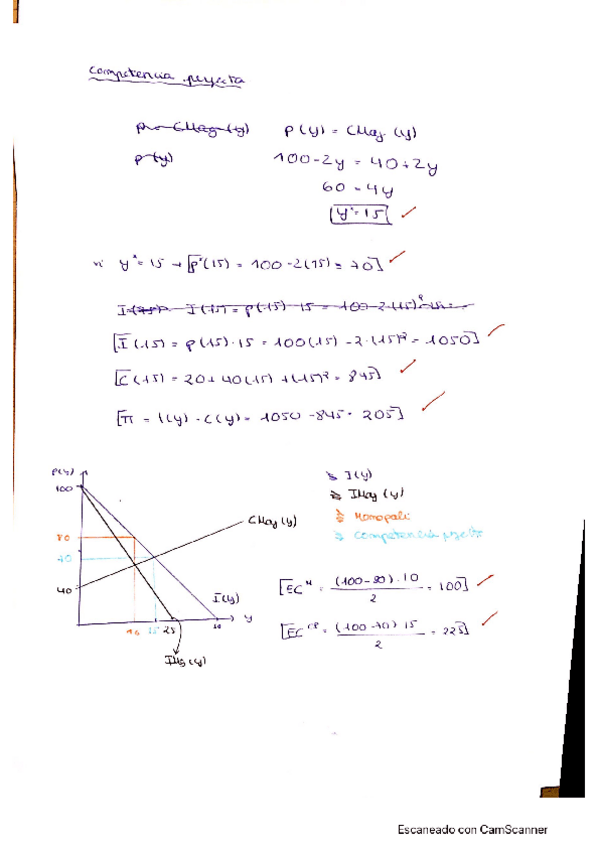 Competencia perfecta
p = CMag (y) P(y) = CMag (y)
p (y) 100 - 2y = 40 + 2y
60 = 4y
y* = 15
y* = 15 → [p*(15) = 100 - 2(15) = 70]
I (15) = p(15) · 15 = 100 - 2 (15)² · 15 =
[I (15) = p(15) · 15 = 100(15) - 2 · (15)² = 1050]
[C (15) = 20 + 40(15) + (15)² = 845]
[π = I(y) - C(y) = 1050 - 845 = 205]
P(y)
100
80
70
40
10 15 25
y
CMag (y)
I(y)
IMg (y)
I(y)
IMag (y)
Monopoli
Competencia perfecta
[EC^M = (100-80) · 10 / 2 = 100]
[EC^CP = (100-70) · 15 / 2 = 225]
Escaneado con CamScanner